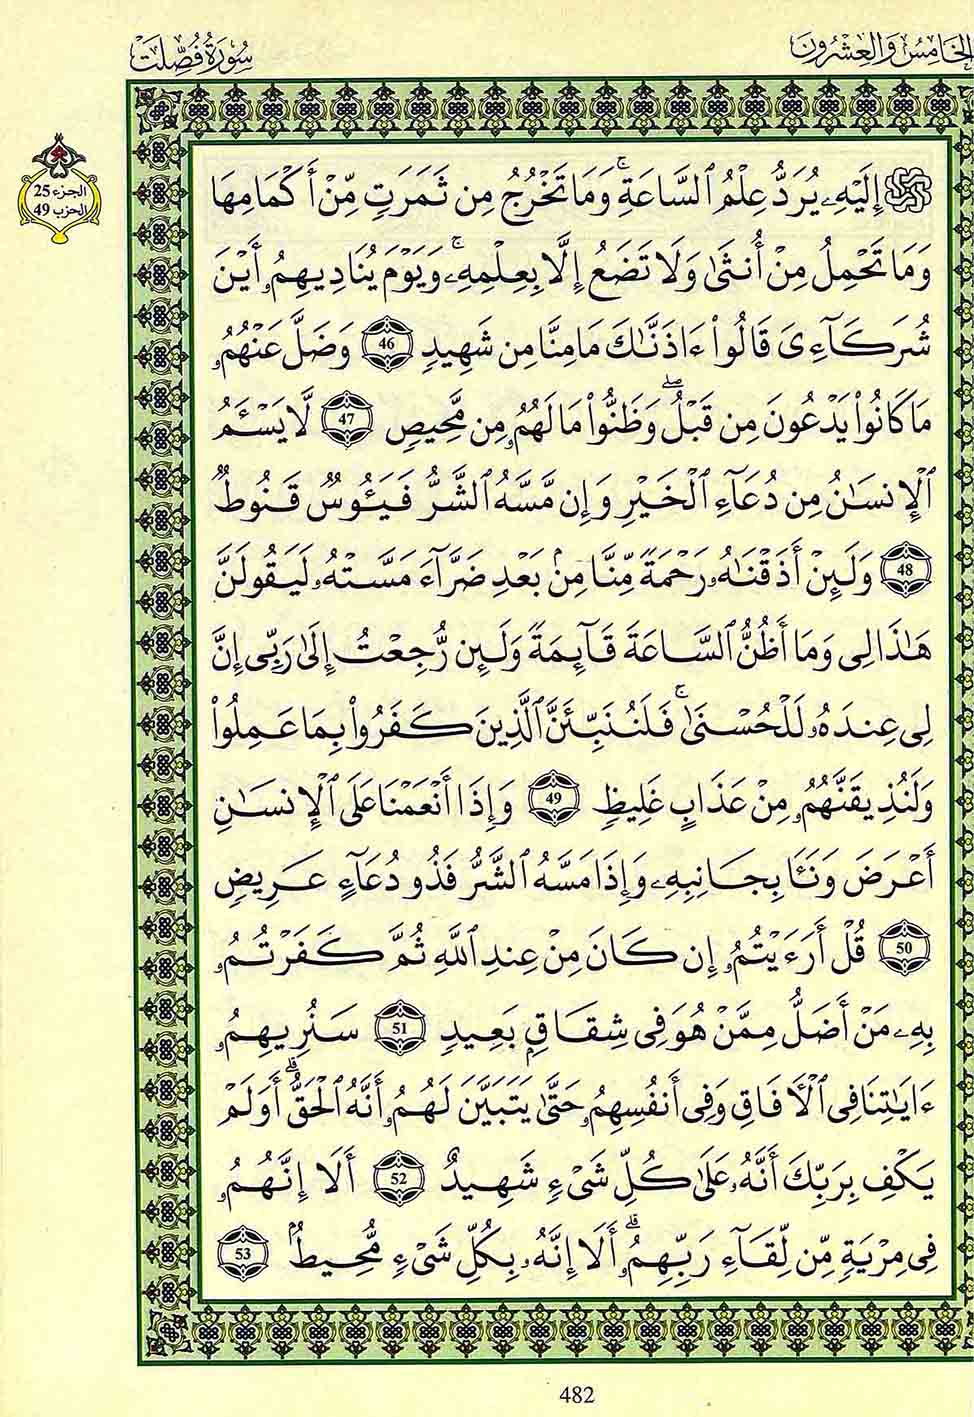 الخامس والعشرون
سورة فصلت
الجزء 25
الحزب 49
إِلَيْهِۦ يُرَدُّ عِلْمُ ٱلسَّاعَةِۚ وَمَا تَخْرُجُ مِن ثَمَرَٰتٍ مِّنْ أَكْمَامِهَا
وَمَا تَحْمِلُ مِنْ أُنثَىٰ وَلَا تَضَعُ إِلَّا بِعِلْمِهِۦۚ وَيَوْمَ يُنَادِيهِمُۥ أَيْنَ
شُرَكَآءِى قَالُوٓاْ ءَاذَنَّٰكَ مَا مِنَّا مِن شَهِيدٍ 46 وَضَلَّ عَنْهُمُۥ
مَا كَانُواْ يَدْعُونَ مِن قَبْلُۖ وَظَنُّواْ مَا لَهُمُۥ مِن مَّحِيصٍ 47 لَّا يَسْـَٔمُ
ٱلْإِنسَٰنُ مِن دُعَآءِ ٱلْخَيْرِ وَإِن مَّسَّهُ ٱلشَّرُّ فَيَـُٔوسٌ قَنُوطٌ
48 وَلَئِنْ أَذَقْنَٰهُۥ رَحْمَةً مِّنَّا مِنۢ بَعْدِ ضَرَّآءَ مَسَّتْهُۥ لَيَقُولَنَّ
هَٰذَا لِى وَمَا أَظُنُّ ٱلسَّاعَةَ قَآئِمَةً وَلَئِن رُّجِعْتُ إِلَىٰ رَبِّى إِنَّ
لِى عِندَهُۥ لَلْحُسْنَىٰۚ فَلَنُنَبِّئَنَّ ٱلَّذِينَ كَفَرُواْ بِمَا عَمِلُواْ
وَلَنُذِيقَنَّهُمُۥ مِنْ عَذَابٍ غَلِيظٍ 49 وَإِذَا أَنْعَمْنَا عَلَى ٱلْإِنسَٰنِ
أَعْرَضَ وَنَـَٔا بِجَانِبِهِۦ وَإِذَا مَسَّهُ ٱلشَّرُّ فَذُو دُعَآءٍ عَرِيضٍ
50 قُلْ أَرَءَيْتُمُۥ إِن كَانَ مِنْ عِندِ ٱللَّهِ ثُمَّ كَفَرْتُمُۥ
بِهِۦ مَنْ أَضَلُّ مِمَّنْ هُوَ فِى شِقَاقٍۭ بَعِيدٍ 51 سَنُرِيهِمُۥ
ءَايَٰتِنَا فِى ٱلْأٓفَاقِ وَفِى أَنفُسِهِمُۥ حَتَّىٰ يَتَبَيَّنَ لَهُمُۥ أَنَّهُ ٱلْحَقُّۗ أَوَلَمْ
يَكْفِ بِرَبِّكَ أَنَّهُۥ عَلَىٰ كُلِّ شَىْءٍ شَهِيدٌ 52 أَلَا إِنَّهُمُۥ
فِى مِرْيَةٍ مِّن لِّقَآءِ رَبِّهِمُۥۗ أَلَا إِنَّهُۥ بِكُلِّ شَىْءٍ مُّحِيطٌۢ 53
482